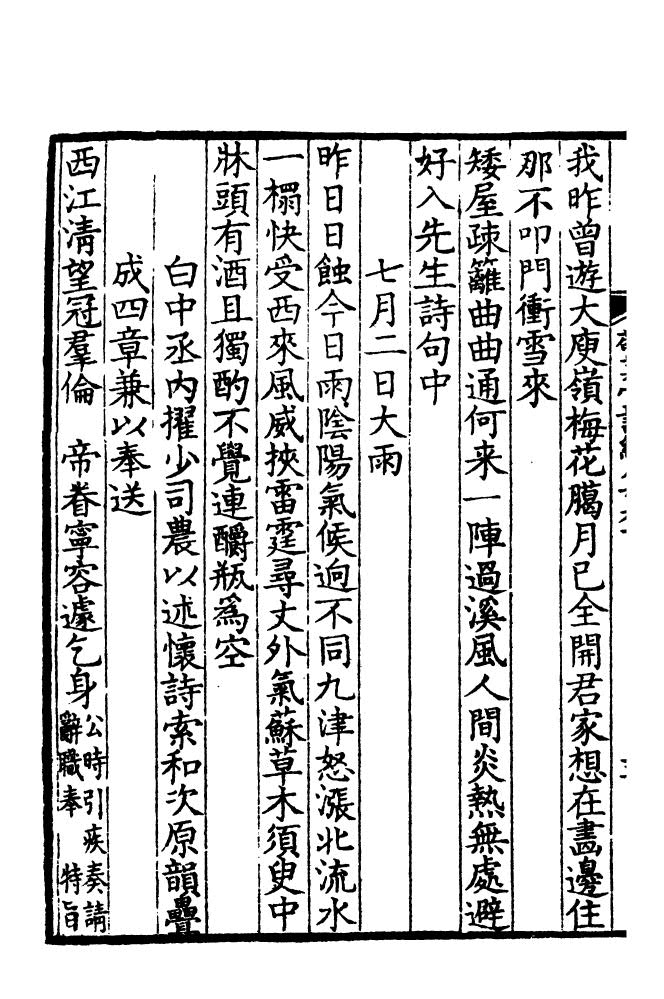 我昨曾遊大庾嶺梅花臈月已全開君家想在畵邊住
那不叩門衝雪來
矮屋疎籬曲曲通何来一陣過溪風人間炎熱無處避
好入先生詩句中
七月二日大雨
昨日日蝕今日雨陰陽氣候逈不同九津怒漲北流水
一榻快受西來風威挾雷霆尋丈外氣蘇草木須臾中
牀頭有酒且獨酌不覺連釂瓶爲空
白中丞内擢少司農以述懷詩索和次原韻疊
成四章兼以奉送
西江淸望冠羣倫　帝眷寧容遽乞身
公時引疾奏請
辭職奉　特旨